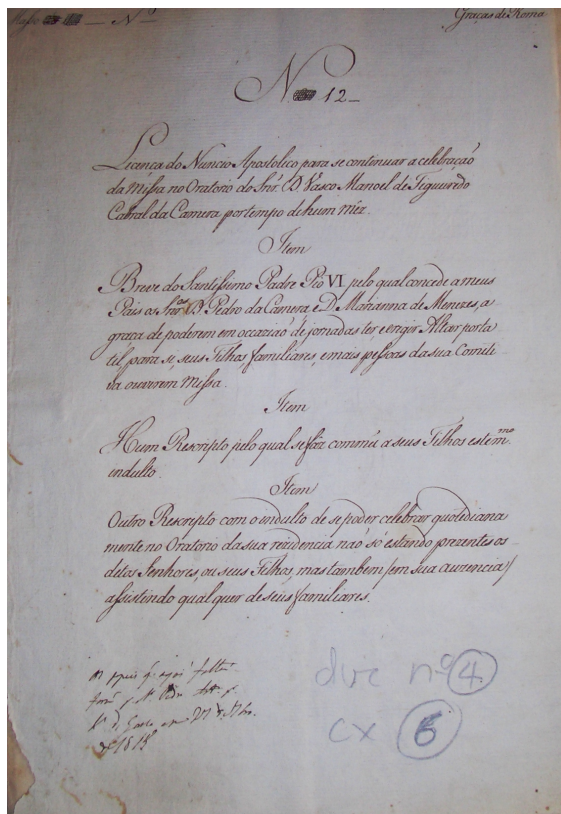 Masso — Nº
Graças de Roma
Nº 12
Licença do Nuncio Apostolico para se continuar a celebração
da Missa no Oratorio do Snr. D. Vasco Manoel de Figueiredo
Cabral da Camera por tempo de hum mez.
Item
Breve do Santissimo Padre Pio VI pelo qual concede a meus
Pais os Snr.es D. Pedro da Camera, e D. Marianna de Menezes, a
graça de poderem em occazião de jornadas ter, e erigir Altar porta
til, para si, seus Filhos familiares, e mais pessoas da sua Comiti-
va ouvirem Missa.
Item
Hum Rescripto pelo qual se faz commũ a seus Filhos este m.mo
indulto.
Item
Outro Rescripto com o indulto de se poder celebrar quotidiana
mente no Oratorio da sua rezidencia não só estando prezentes os
ditos Senhores, ou seus Filhos, mas tambem /em sua auzencia/
assistindo qualquer de seus familiares.
falta
de 1818
nº 4
cx 6